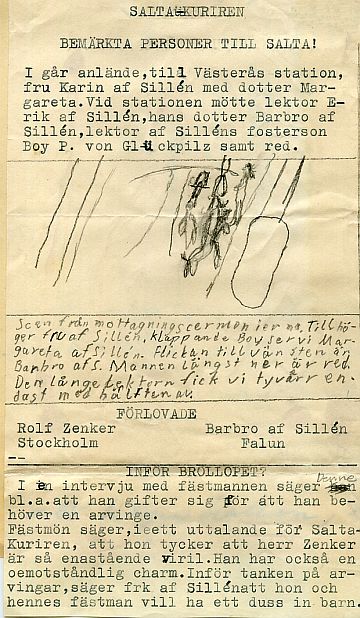 SALTA-KURIREN
BEMÄRKTA PERSONER TILL SALTA!
I går anlände,till Västerås station,
fru Karin af Sillén med dotter Mar-
gareta.Vid stationen mötte lektor E-
rik af Sillén,hans dotter Barbro af
Sillén,lektor af Silléns fosterson
Boy P. von Glückpilz samt red.
Scen från mottagningscermonierna, Till hö-
ger fru af Sillén, kläppande Boy ser vi Mar-
gareta af Sillén. Flickan till vänster är
Barbro af S. Mannen längst ner är red.
Den långe lektorn fick vi tyvärr en-
dast med hälften av.
FÖRLOVADE
Rolf Zenker Barbro af Sillén
Stockholm Falun
--
INFÖR BRÖLLOPET?
I en intervju med fästmannen säger Denne
bl.a.att han gifter sig för att han be-
höver en arvinge.
Fästmön säger,i ett uttalande för Salta-
Kuriren, att hon tycker att herr Zenker
är så enastående viril.Han har också en
oemotståndlig charm.Inför tanken på ar-
vingar,säger frk af Sillénatt hon och
hennes fästman vill ha ett duss in barn.